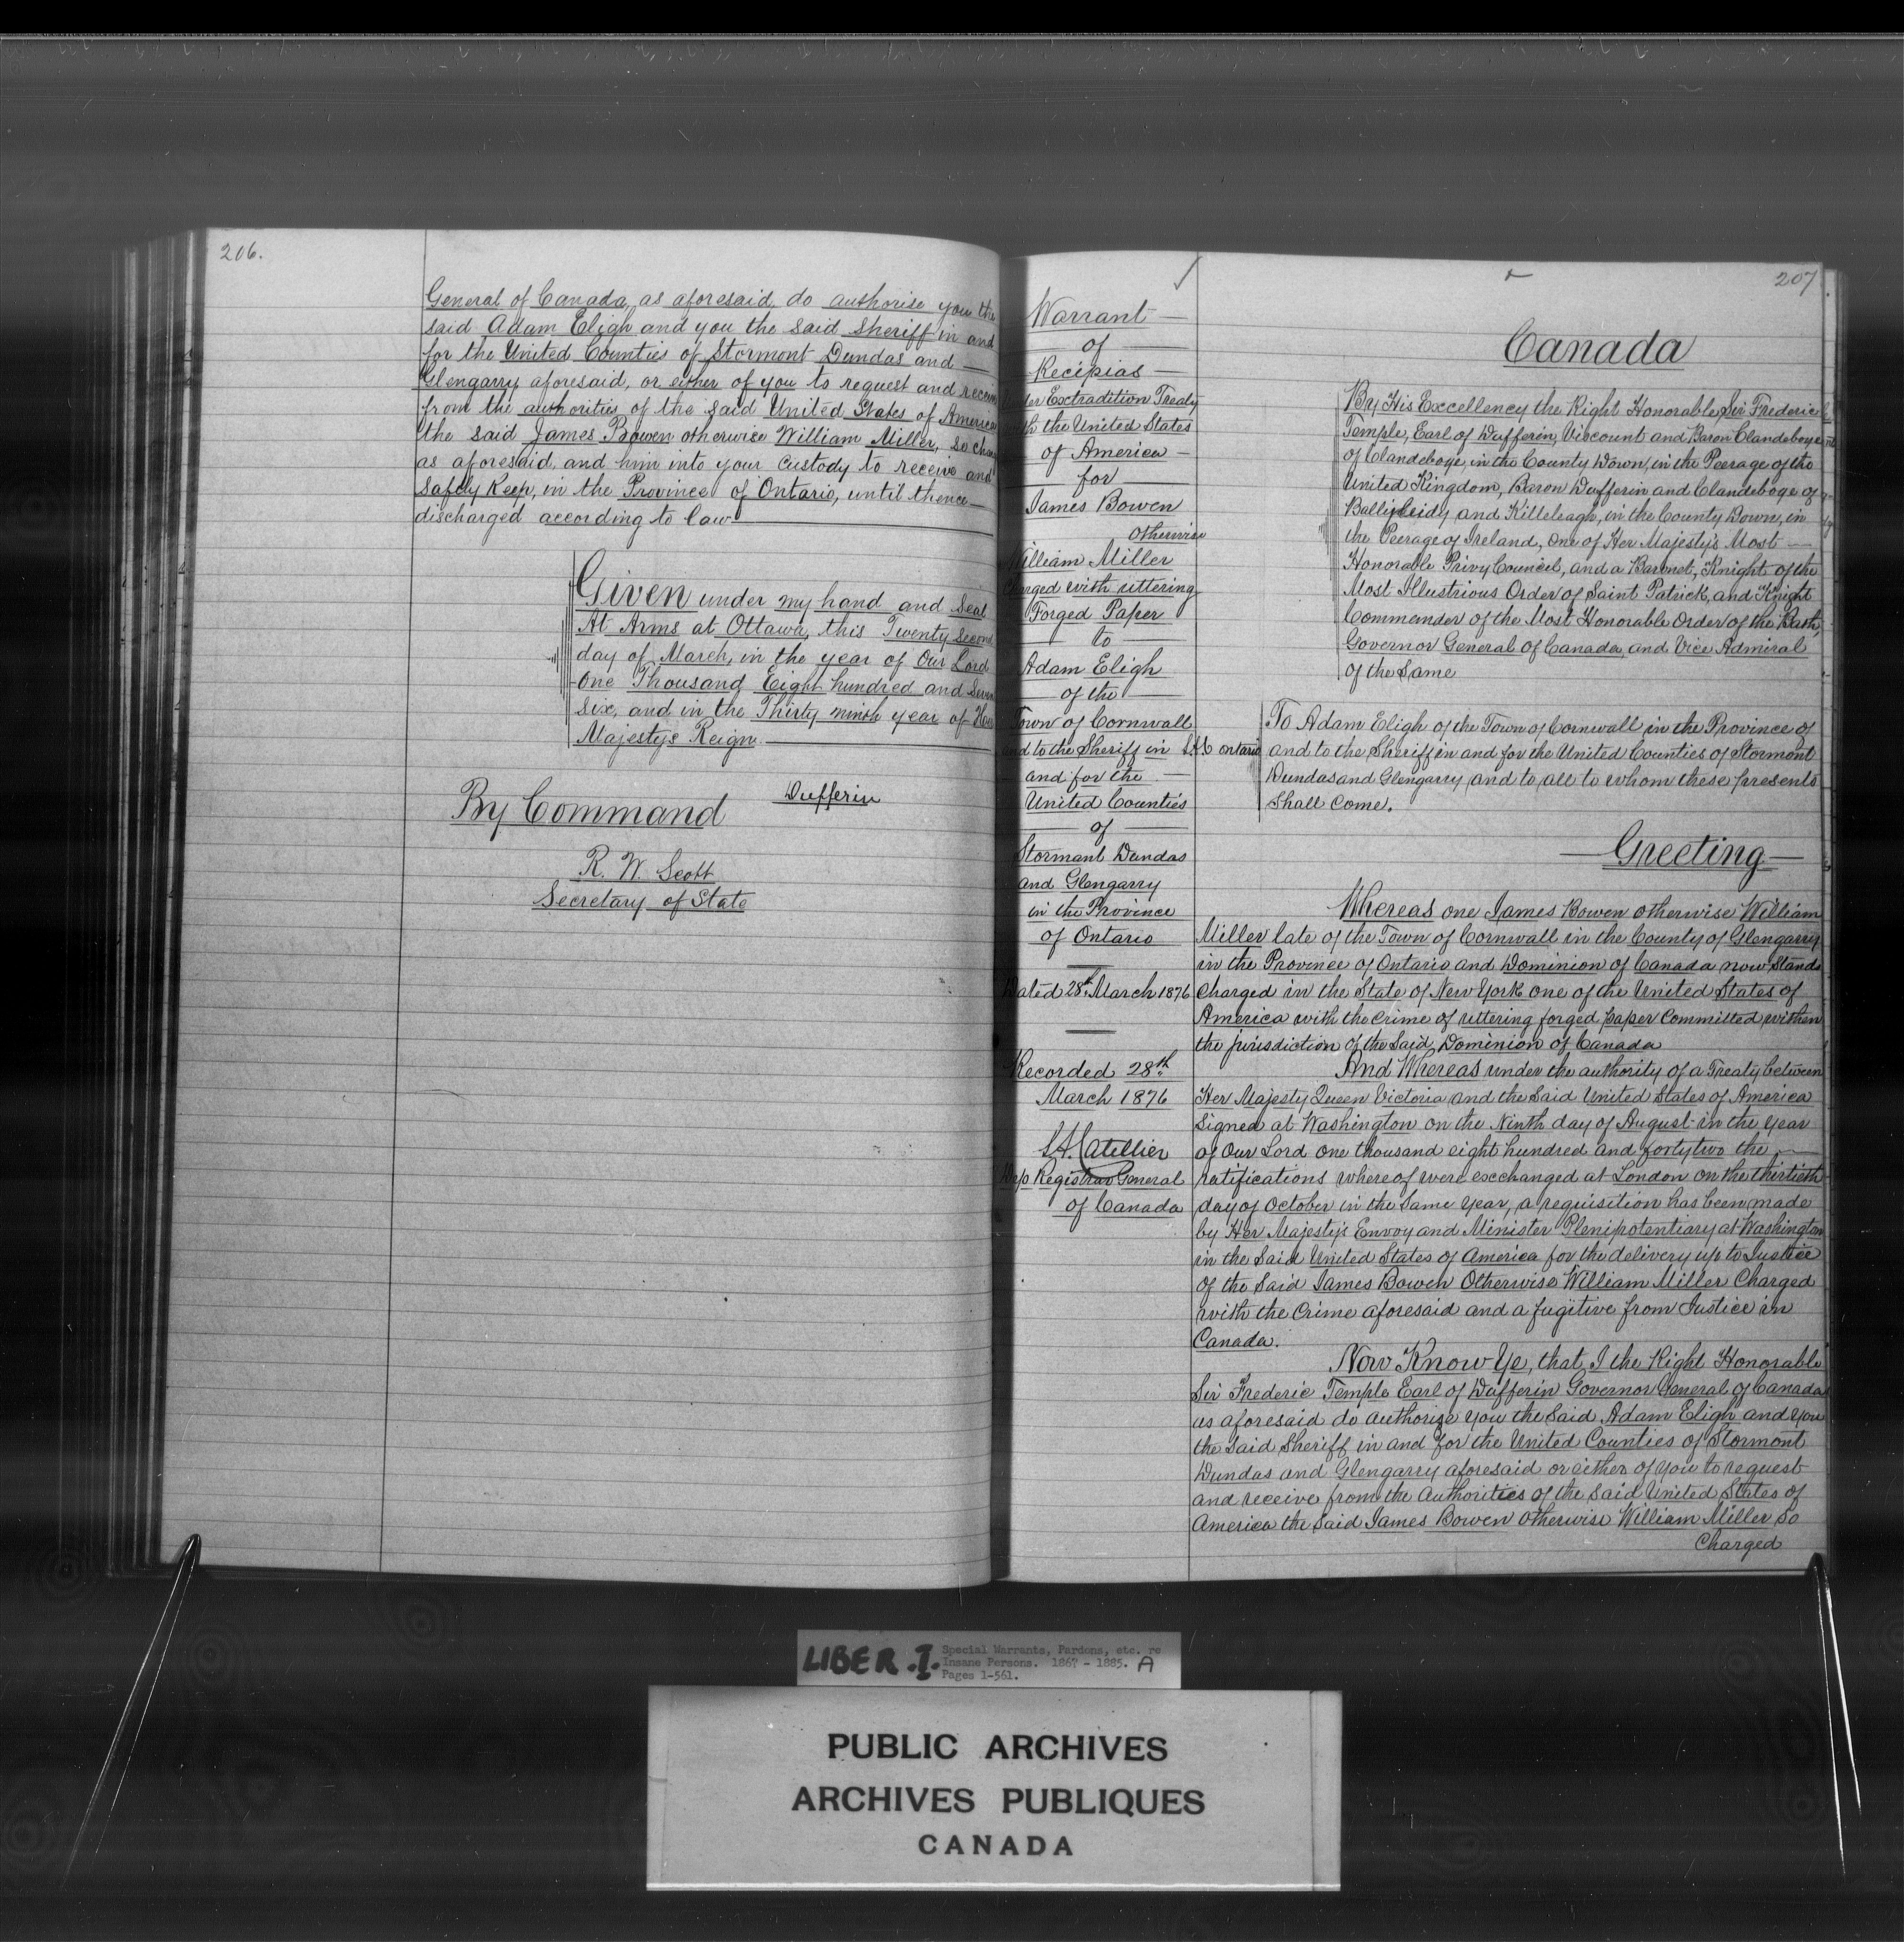 206.
General of Canada, as aforesaid, do authorise you the
said Adam Eligh and you the said Sheriff in and
for the United Counties of Stormont Dundas and
Glengarry aforesaid, or either of you to request and receive
from the authorities of the said United States of America
the said James Bowen otherwise William Miller, so
as aforesaid, and him into your custody to receive and
safely keep, in the Province of Ontario, until thence
discharged according to law
Given under my hand and Seal
At Arms at Ottawa, this Twenty second
day of March, in the year of Our Lord
One Thousand Eight hundred and
six, and in the Thirty ninth year of Her
Majestys Reign
Dufferin
By Command
R. W. Scott
Secretary of State
207
Warrant
of
Recipias
Exctradition Treaty
the United States
of America
for
James Bowen
otherwise
William Miller
Charged with uttering
Forged Paper
to
Adam Eligh
of the
Town of Cornwall
and to the Sheriff in
and for the
United Counties
of
Stormant Dundas
and Glengarry
in the Province
of Ontario
Dated 28th March 1876
Recorded 28th
March 1876
Dep Registrar General
of Canada
Canada
By His Excellency the Right Honorable Sir Frederic
Temple, Earl of Dufferin, Viscount and Baron Clandeboye
of Clandeboye, in the County Down, in the Peerage of the
United Kingdom, Baron Dufferin and Clandeboye of
Ballyleidy and Killeleagh, in the County Down, in
the Peerage of Ireland, one of Her Majesty's Most
Honorable Privy Council, and a Baronet, Knight of the
Most Illustrious Order of Saint Patrick, and Knight
Commander of the Most Honorable Order of the Bath,
Governor General of Canada, and Vice Admiral
of the Same
To Adam Eligh of the Town of Cornwall in the Province of
Ontario and to the Sheriff in and for the United Counties of Stormont
Dundas and Glengarry and to all to whom these presents
shall come.
Greeting
Whereas one James Bowen otherwise William
Miller late of the Town of Cornwall in the County of Glengarry
in the Province of Ontario and Dominion of Canada now stands
Charged in the State of New York one of the United States of
America with the crime of uttering forged paper committed within
the jurisdiction of the said Dominion of Canada
And Whereas under the authority of a Treaty between
Her Majesty Queen Victoria and the said United States of America
Signed at Washington on the Ninth day of August in the year
of Our Lord one thousand eight hundred and forty two the
ratifications whereof were exchanged at London on the thirtieth
day of October in the same year, a requisition has been made
by Her Majesty's Envoy and Minister Plenipotentiary at Washington
in the said United States of America for the delivery up to Justice
of the said James Bowen Otherwise William Miller Charged
with the Crime aforesaid and a fugitive from Justice in
Canada.
Now Know Ye, that I the Right Honorable
Sir Frederic Temple Earl of Dufferin Governor General of Canada
as aforesaid do authorize you the said Adam Eligh and you
the said Sheriff in and for the United Counties of Stormont
Dundas and Glengarry aforesaid or either of you to request
and receive from the Authorities of the said United States of
America the said James Bowen otherwise William Miller so
Charged
LIBER. I.
Special Warrants, Pardons, etc. re
Insane Persons. 1867 - 1885. A
Pages 1-561.
PUBLIC ARCHIVES
ARCHIVES PUBLIQUES
CANADA